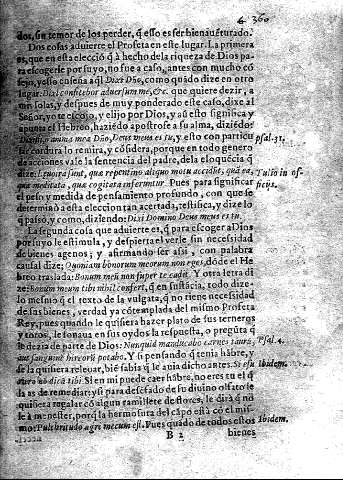 4. 360
dos, sin temor de los perder, q̃ esso es ser bienauẽturado.
Dos cosas aduierte el Profeta en este lugar. La primera
es, que en esta elecciõ q̃ à hecho dela riqueza de Dios pa-
ra escogerle por suyo, no fue a caso, antes con mucho cõ
sejo, y esso enseña aql̃ Dixi Dño, como quãdo dize en otro
lugar. Dixi confitebor aduersum me, &c. que quiere dezir, a
mis solas, y despues de muy ponderado este caso, dixe al
Señor, yo te escojo, y elijo por Dios, y aũ esto significa y
apunta el Hebreo, haziẽdo apostrofe a su alma, diziẽdo:
anima mea Dño, Deus meus es tu, y esto con particu psal. 31.
lar cordura lo remira, y cõsidera, porque en todo genero
de acciones vale la sentencia del padre, de la eloquẽcia q̃
dize: Leuiora sunt, quæ repentino aliquo motu accidũt, quã ea, Tulio in of-
quæ meditata, quæ cogitata inferuntur. Pues para significar ficijs.
el peso y medida de pensamiento profundo, con que se
determinò à esta eleccion tan acertada, testifica, y dize lo
q̃ passò, y como, diziendo: Dixi Domino Deus meus es tu.
La segunda cosa que aduierte es, q̃ para escoger a Dios
por suyo le estimula, y despierta el verle sin necessidad
de bienes agenos; y afirmando ser assi, con palabra
causal dize: Quoniam bonorum meorum non eges, dõde el He
breo traslada: Bonum meũ non super te cadit. Y otra letra di
ze: Bonum meum tibi nihil confert, q̃ en sustãcia, todo dize
lo mesmo q̃ el texto de la vulgata, q̃ no tiene necessidad
de sus bienes, verdad ya cõtemplada del mismo Profeta
Rey, pues quando le quisiera hazer plato de sus terneros
y toros, le sonaua en sus oydos la respuesta, o pregũta q̃
le dezia de parte de Dios: Nunquid manducabo carnes taurũ, Psal. 4.
aut sanguinẽ hircorũ potabo. Y si pensando q̃ tenia hãbre, y
se la quisiera releuar, biẽ sabia q̃ le auia dicho antes. Si esu Ibidem.
riero nõ dicã tibi. Si en mi puede caer hãbre, no eres tu el q̃
la as de remediar: y si para desefado de su diuino olfato le
quisiera regalar cõ algun ramillete de flores, le dirà q̃ no
le à menester, porq̃ la hermosura del cãpo està cõ el mis-
mo: Pulchritudo agri mecum est. Pues quado de todos estos Ibidem.
B 2 bienes